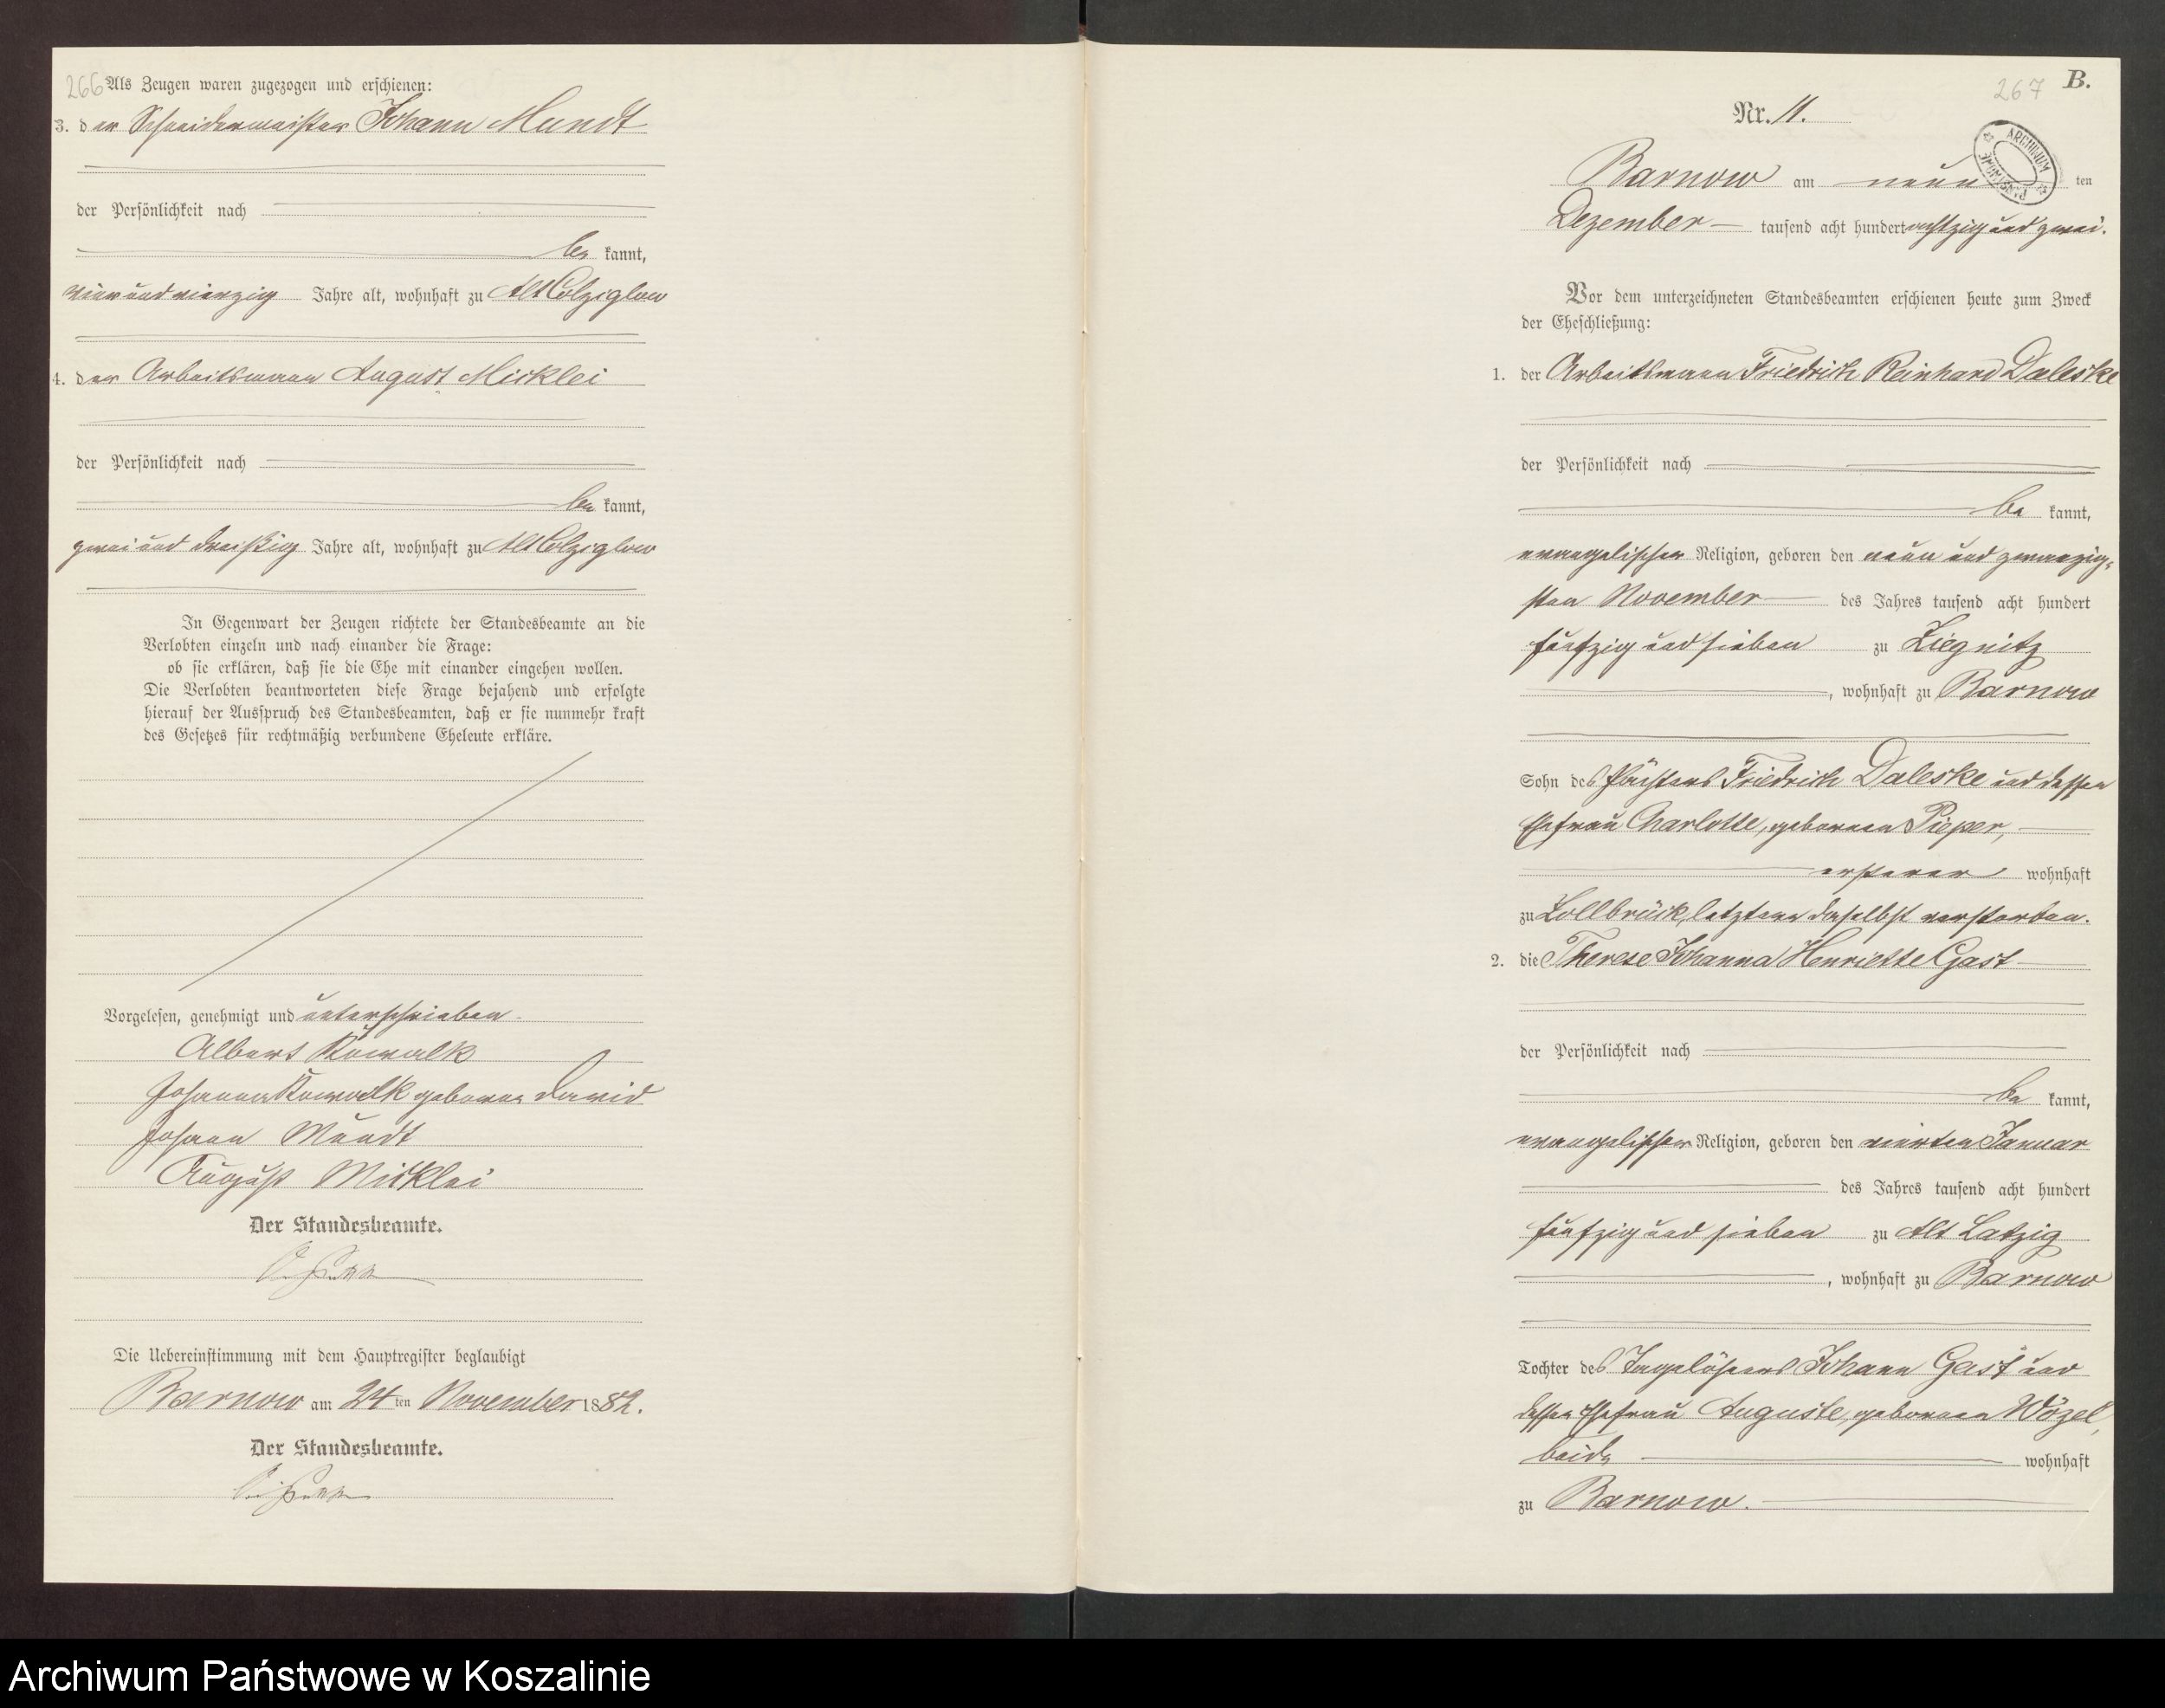 266 Als Zeugen waren zugezogen und erschienen:
3. der Schneidermeister Johann Mundt
der Persönlichkeit nach
be kannt,
vier und vierzig Jahre alt, wohnhaft zu Alt Colziglow
4. der Arbeitsmann August Micklei
der Persönlichkeit nach
be kannt,
zwei und dreißig Jahre alt, wohnhaft zu Alt Colziglow
In Gegenwart der Zeugen richtete der Standesbeamte an die
Verlobten einzeln und nach einander die Frage:
ob sie erklären, daß sie die Ehe mit einander eingehen wollen.
Die Verlobten beantworteten diese Frage bejahend und erfolgte
hierauf der Ausspruch des Standesbeamten, daß er sie nunmehr kraft
des Gesetzes für rechtmäßig verbundene Eheleute erkläre.
Vorgelesen, genehmigt und unterschrieben.
Albert Kowalk
Johanna Kowalk geborne David
Johann Mundt
August Micklei
Der Standesbeamte.
Die Uebereinstimmung mit dem Hauptregister beglaubigt
Barnow am 24 ten November 1882.
Der Standesbeamte.
267 B.
Nr. 11.
ARCHIWUM PAŃSTWOWE
Barnow am neun ten
Dezember tausend acht hundert achtzig und zwei.
Vor dem unterzeichneten Standesbeamten erschienen heute zum Zweck
der Eheschließung:
1. der Arbeitsmann Friedrich Reinhard Daleske
der Persönlichkeit nach
be kannt,
evangelischer Religion, geboren den neun und zwanzig-
sten November des Jahres tausend acht hundert
fünfzig und sieben zu Liegnitz
, wohnhaft zu Barnow
Sohn des Pächters Friedrich Daleske und dessen
Ehefrau Charlotte, geborenen Pieper,
ersterer wohnhaft
zu Zollbrück, letztere daselbst verstorben.
2. die Therese Johanna Henriette Gast
der Persönlichkeit nach
be kannt,
evangelischer Religion, geboren den vierten Januar
des Jahres tausend acht hundert
fünfzig und sieben zu Alt Latzig
, wohnhaft zu Barnow
Tochter des Tagelöhners Johann Gast und
dessen Ehefrau Auguste, geborenen Wözel,
beide wohnhaft
zu Barnow.
Archiwum Państwowe w Koszalinie